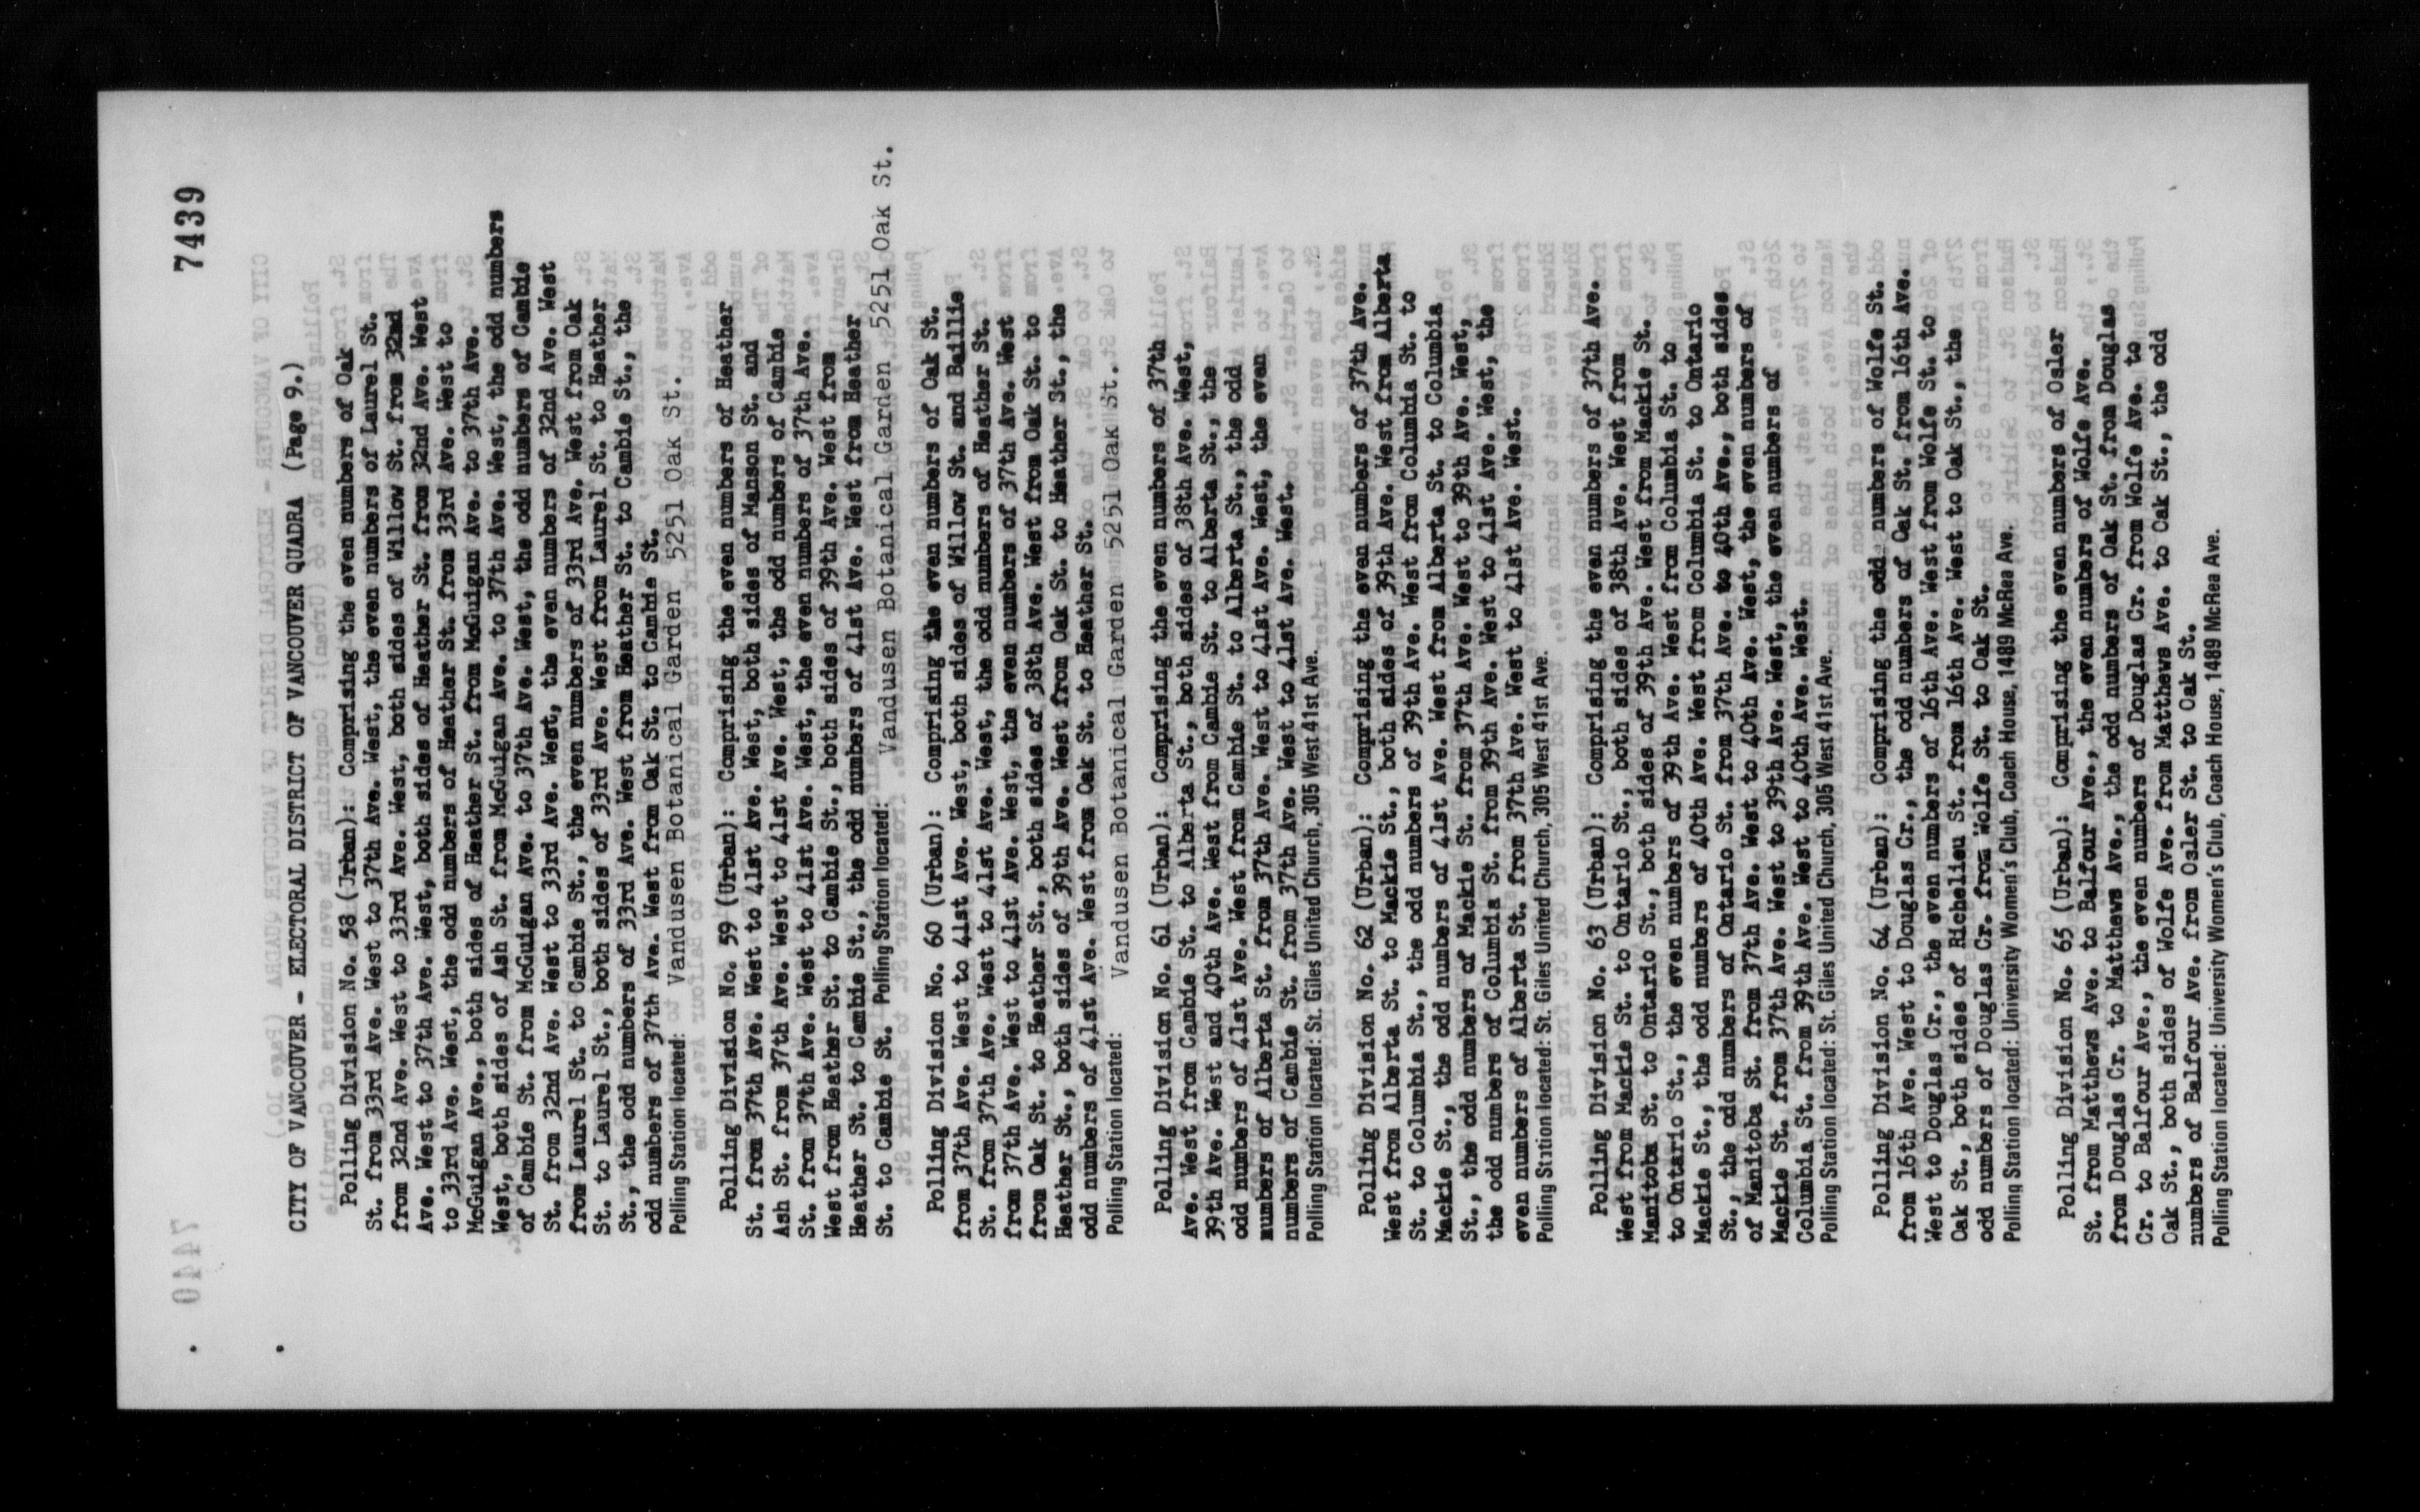 7439
CITY OF VANCOUVER - ELECTORAL DISTRICT OF VANCOUVER QUADRA (Page 9.)
Polling Division No. 58 (Urban): Comprising the even numbers of Oak
St. from 33rd Ave. West to 37th Ave. West, the even numbers of Laurel St.
from 32nd Ave. West to 33rd Ave. West, both sides of Willow St. from 32nd
Ave. West to 37th Ave. West, both sides of Heather St. from 32nd Ave. West
to 33rd Ave. West, the odd numbers of Heather St. from 33rd Ave. West to
McGuigan Ave., both sides of Heather St. from McGuigan Ave. to 37th Ave.
West, both sides of Ash St. from McGuigan Ave. to 37th Ave. West, the odd numbers
of Cambie St. from McGuigan Ave. to 37th Ave. West, the odd numbers of Cambie
St. from 32nd Ave. West to 33rd Ave. West, the even numbers of 32nd Ave. West
from Laurel St. to Cambie St., the even numbers of 33rd Ave. West from Oak
St. to Laurel St., both sides of 33rd Ave. West from Laurel St. to Heather
St., the odd numbers of 33rd Ave. West from Heather St. to Cambie St., the
odd numbers of 37th Ave. West from Oak St. to Cambie St.
Polling Station located: Vandusen Botanical Garden 5251 Oak St.
Polling Division No. 59 (Urban): Comprising the even numbers of Heather
St. from 37th Ave. West to 41st Ave. West, both sides of Manson St. and
Ash St. from 37th Ave. West to 41st Ave. West, the odd numbers of Cambie
St. from 37th Ave. West to 41st Ave. West, the even numbers of 37th Ave.
West from Heather St. to Cambie St., both sides of 39th Ave. West from
Heather St. to Cambie St., the odd numbers of 41st Ave. West from Heather
St. to Cambie St. Polling Station located: Vandusen Botanical Garden 5251 Oak St.
Polling Division No. 60 (Urban): Comprising the even numbers of Oak St.
from 37th Ave. West to 41st Ave. West, both sides of Willow St. and Baillie
St. from 37th Ave. West to 41st Ave. West, the odd numbers of Heather St.
from 37th Ave. West to 41st Ave. West, the even numbers of 37th Ave. West
from Oak St. to Heather St., both sides of 38th Ave. West from Oak St. to
Heather St., both sides of 39th Ave. West from Oak St. to Heather St., the
odd numbers of 41st Ave. West from Oak St. to Heather St.
Polling Station located: Vandusen Botanical Garden 5251 Oak St.
Polling Division No. 61 (Urban): Comprising the even numbers of 37th
Ave. West from Cambie St. to Alberta St., both sides of 38th Ave. West,
39th Ave. West and 40th Ave. West from Cambie St. to Alberta St., the
odd numbers of 41st Ave. West from Cambie St. to Alberta St., the odd
numbers of Alberta St. from 37th Ave. West to 41st Ave. West, the even
numbers of Cambie St. from 37th Ave. West to 41st Ave. West.
Polling Station located: St. Giles United Church, 305 West 41st Ave.
Polling Division No. 62 (Urban): Comprising the even numbers of 37th Ave.
West from Alberta St. to Mackie St., both sides of 39th Ave. West from Alberta
St. to Columbia St., the odd numbers of 39th Ave. West from Columbia St. to
Mackie St., the odd numbers of 41st Ave. West from Alberta St. to Columbia
St., the odd numbers of Mackie St. from 37th Ave. West to 39th Ave. West,
the odd numbers of Columbia St. from 39th Ave. West to 41st Ave. West, the
even numbers of Alberta St. from 37th Ave. West to 41st Ave. West.
Polling Station located: St. Giles United Church, 305 West 41st Ave.
Polling Division No. 63 (Urban): Comprising the even numbers of 37th Ave.
West from Mackie St. to Ontario St., both sides of 38th Ave. West from
Manitoba St. to Ontario St., both sides of 39th Ave. West from Mackie St.
to Ontario St., the even numbers of 39th Ave. West from Columbia St. to
Mackie St., the odd numbers of 40th Ave. West from Columbia St. to Ontario
St., the odd numbers of Ontario St. from 37th Ave. to 40th Ave., both sides
of Manitoba St. from 37th Ave. West to 40th Ave. West, the even numbers of
Mackie St. from 37th Ave. West to 39th Ave. West, the even numbers of
Columbia St. from 39th Ave. West to 40th Ave. West.
Polling Station located: St. Giles United Church, 305 West 41st Ave.
Polling Division No. 64 (Urban): Comprising the odd numbers of Wolfe St.
from 16th Ave. West to Douglas Cr., the odd numbers of Oak St. from 16th Ave.
West to Douglas Cr., the even numbers of 16th Ave. West from Wolfe St. to
Oak St., both sides of Richelieu St. from 16th Ave. West to Oak St., the
odd numbers of Douglas Cr. from Wolfe St. to Oak St.
Polling Station located: University Women's Club, Coach House, 1489 McRea Ave.
Polling Division No. 65 (Urban): Comprising the even numbers of Osler
St. from Matthews Ave. to Balfour Ave., the even numbers of Wolfe Ave.
from Douglas Cr. to Matthews Ave., the odd numbers of Oak St. from Douglas
Cr. to Balfour Ave., the even numbers of Douglas Cr. from Wolfe Ave. to
Oak St., both sides of Wolfe Ave. from Matthews Ave. to Oak St., the odd
numbers of Balfour Ave. from Osler St. to Oak St.
Polling Station located: University Women's Club, Coach House, 1489 McRea Ave.